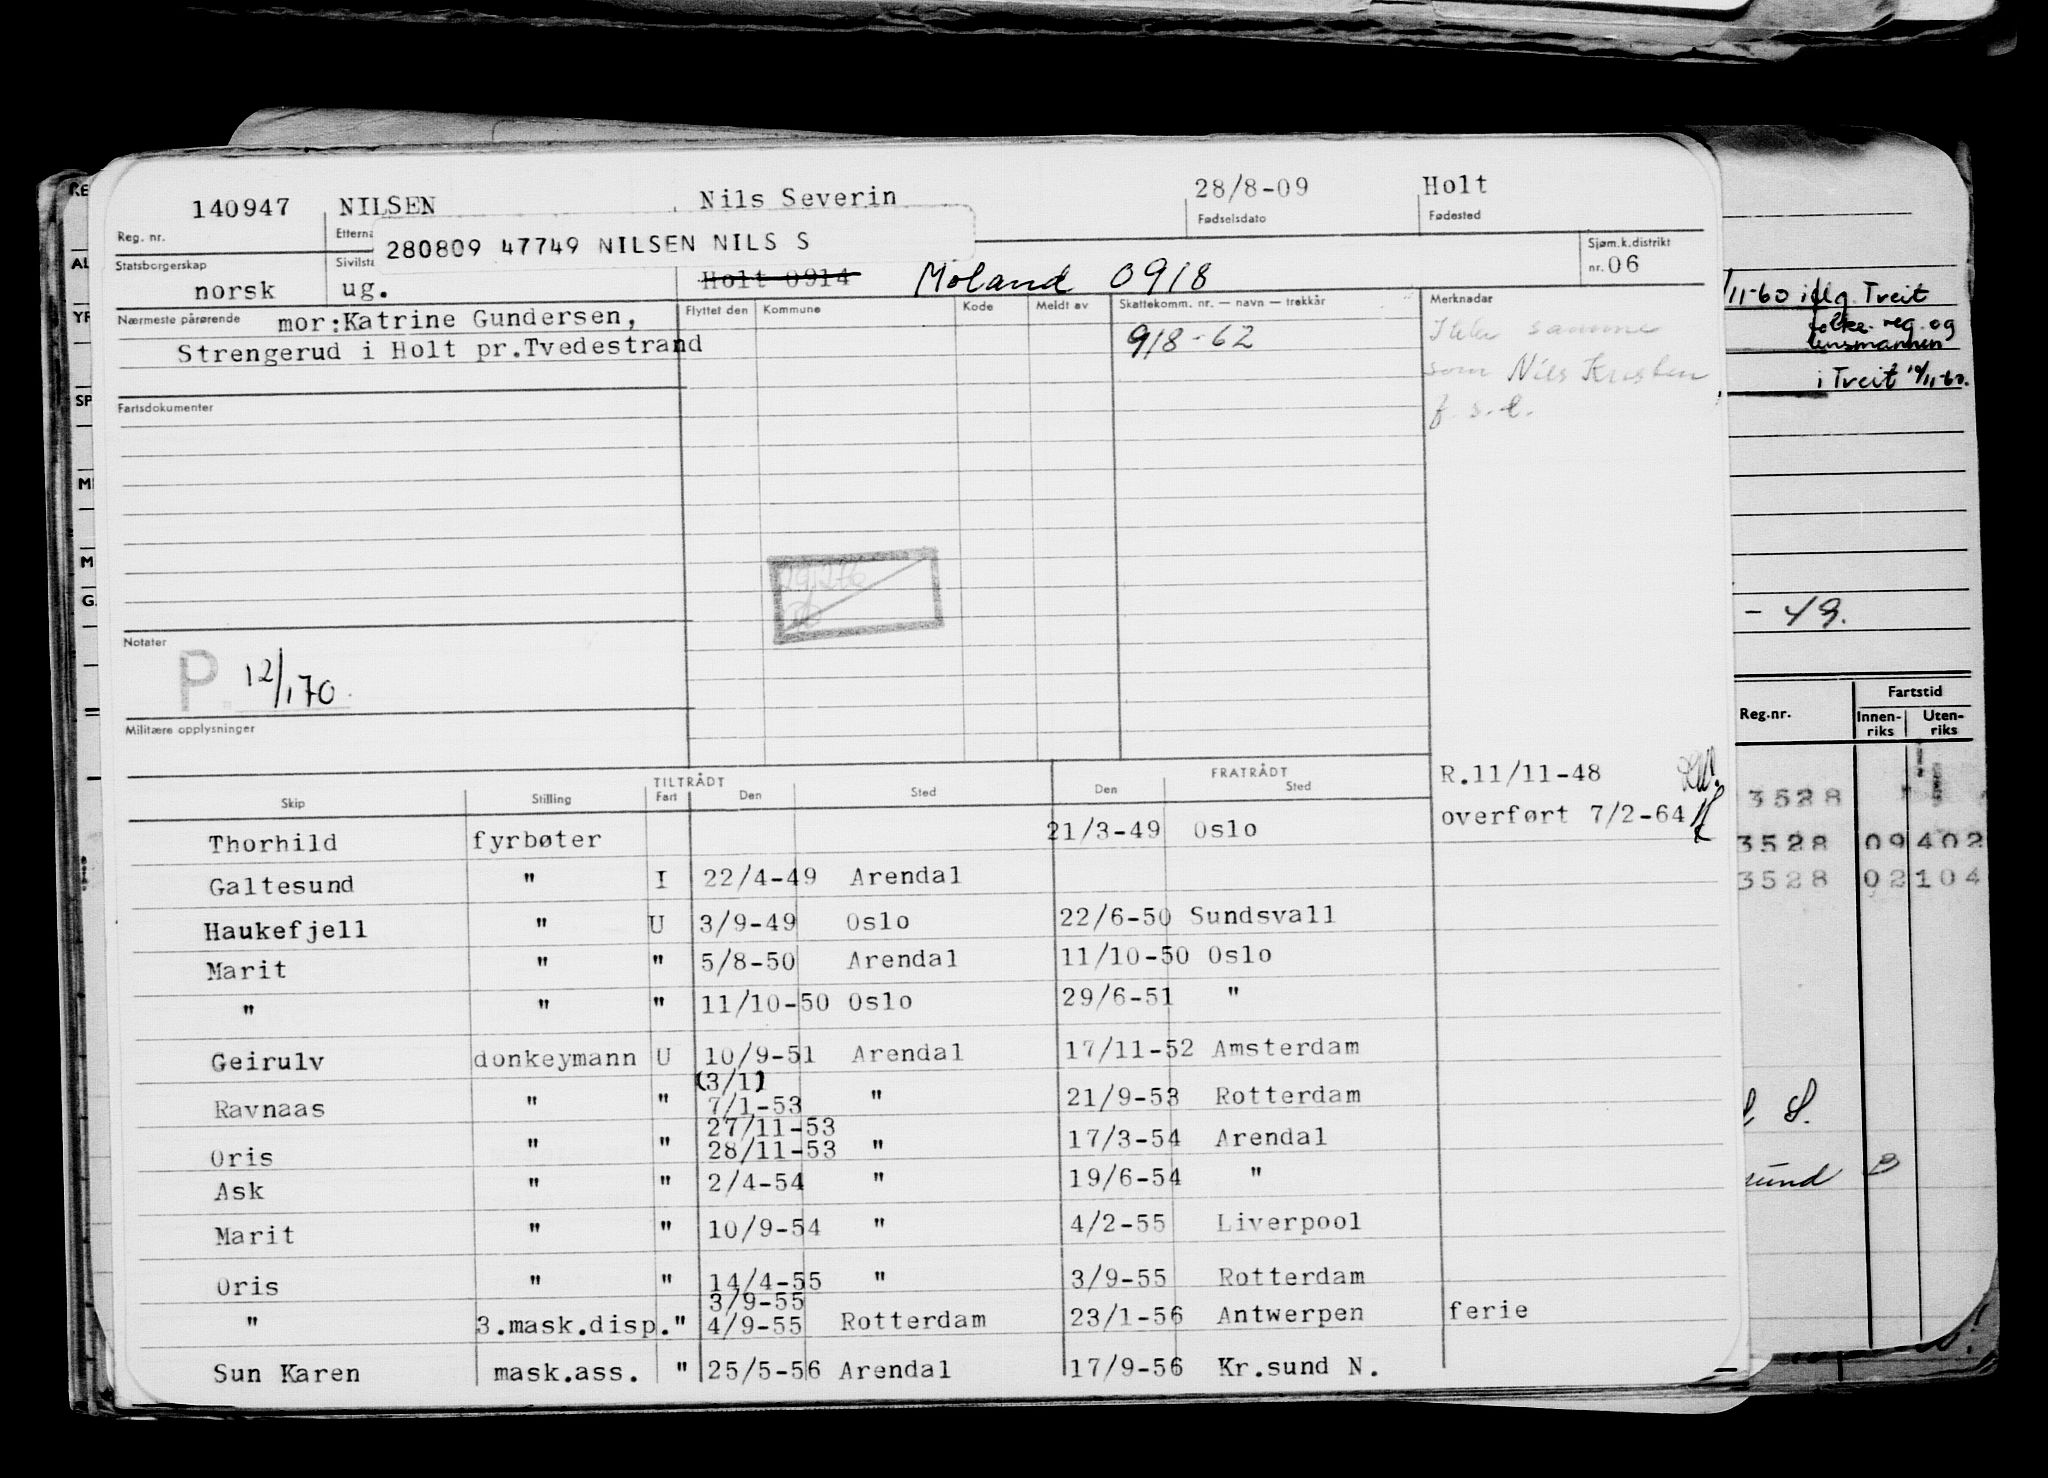 140947 NILSEN Nils Severin 28/8-09 Holt
Reg. nr. Etterna Fødselsdato Fødested
280809 47749 NILSEN NILS S
Statsborgerskap Sivilsta Sjøm.k.distrikt
norsk ug. Holt 0914 Moland 0918 nr. 06
Nærmeste pårørende mor:Katrine Gundersen,
Strengerud i Holt pr.Tvedestrand
Flyttet den Kommune Kode Meldt av Skattekomm. nr. — navn — trekkår Merknader
918-62
samme
som Nils Kristen
f. s. d.
Fartsdokumenter
Notater
P 12/1 70
Militære opplysninger
TILTRÅDT FRATRÅDT
Skip Stilling Fart Den Sted Den Sted
R.11/11-48
overført 7/2-64
Thorhild fyrbøter 21/3-49 Oslo
Galtesund " I 22/4-49 Arendal
Haukefjell " U 3/9-49 Oslo 22/6-50 Sundsvall
Marit " " 5/8-50 Arendal 11/10-50 Oslo
" " " 11/10-50 Oslo 29/6-51 "
Geirulv donkeymann U 10/9-51 Arendal 17/11-52 Amsterdam
(3/1)
Ravnaas " " 7/1-53 " 21/9-53 Rotterdam
27/11-53
Oris " " 28/11-53 " 17/3-54 Arendal
Ask " " 2/4-54 " 19/6-54 "
Marit " " 10/9-54 " 4/2-55 Liverpool
Oris " " 14/4-55 " 3/9-55 Rotterdam
3/9-55
" 3.mask.disp. " 4/9-55 Rotterdam 23/1-56 Antwerpen ferie
Sun Karen mask.ass. " 25/5-56 Arendal 17/9-56 Kr.sund N.
RE
AL
YR
SP
MI
M
G.
/11-60 iflg. Treit
folke.reg. og
lensmannen
i Treit
- 49.
Reg.nr. Fartstid
Innen-riks Uten-riks
3528
3528 09 402
3528 02 104
S.
sund B